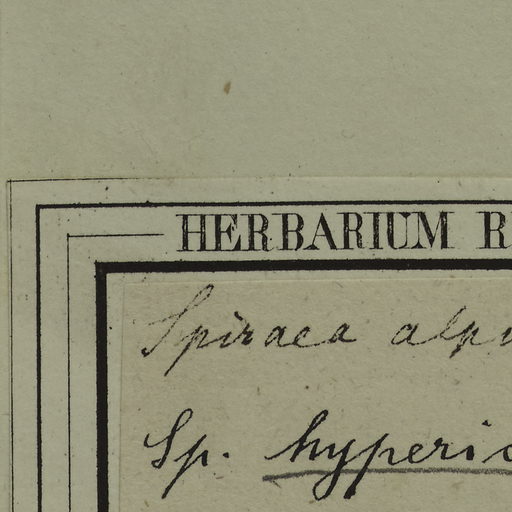 HERBARIUM R
Spiraea alpi
Sp. hyperic